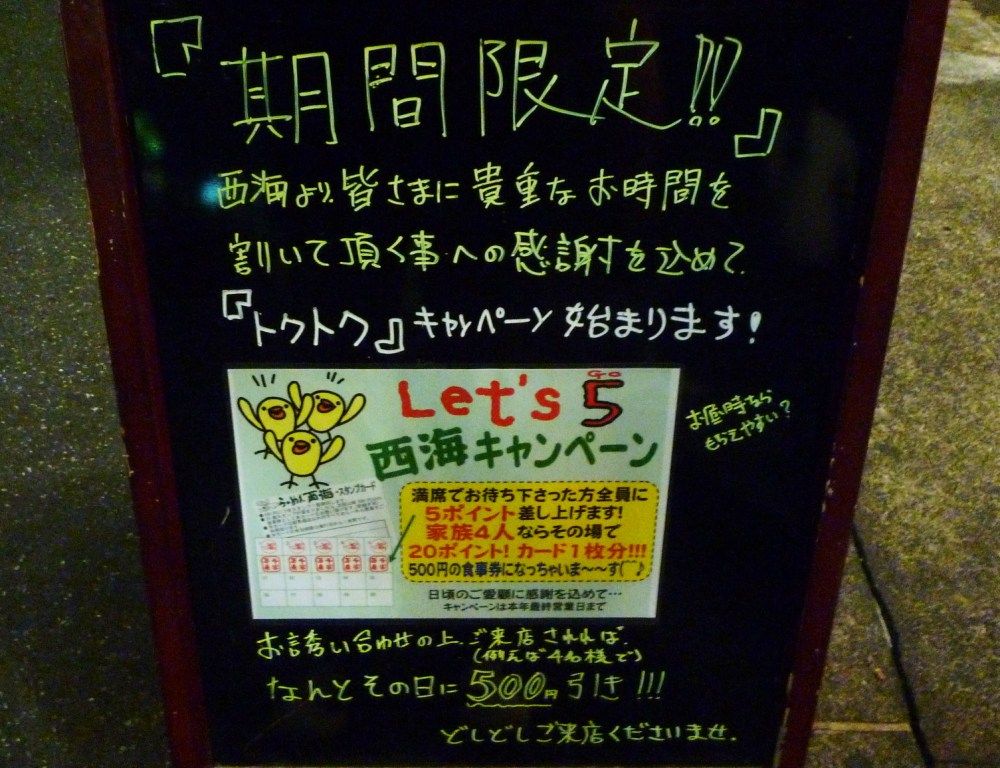 『期間限定!!』
西海より皆さまに貴重なお時間を
割いて頂く事への感謝を込めて
『トクトク』キャンペーン始まります!
Let's 5
GO
西海キャンペーン
お昼時なら
もらえやすい?
らーめん西海・スタンプカード
満席でお待ち下さった方全員に
5ポイント差し上げます!
家族4人ならその場で
20ポイント! カード1枚分!!!
500円の食事券になっちゃいま〜〜す(⌒⌒♪
日頃のご愛顧に感謝を込めて…
キャンペーンは本年最終営業日まで
お誘い合わせの上、ご来店されれば、
(例えば4名様で)
なんとその日に500円引き!!!
どしどしご来店くださいませ。